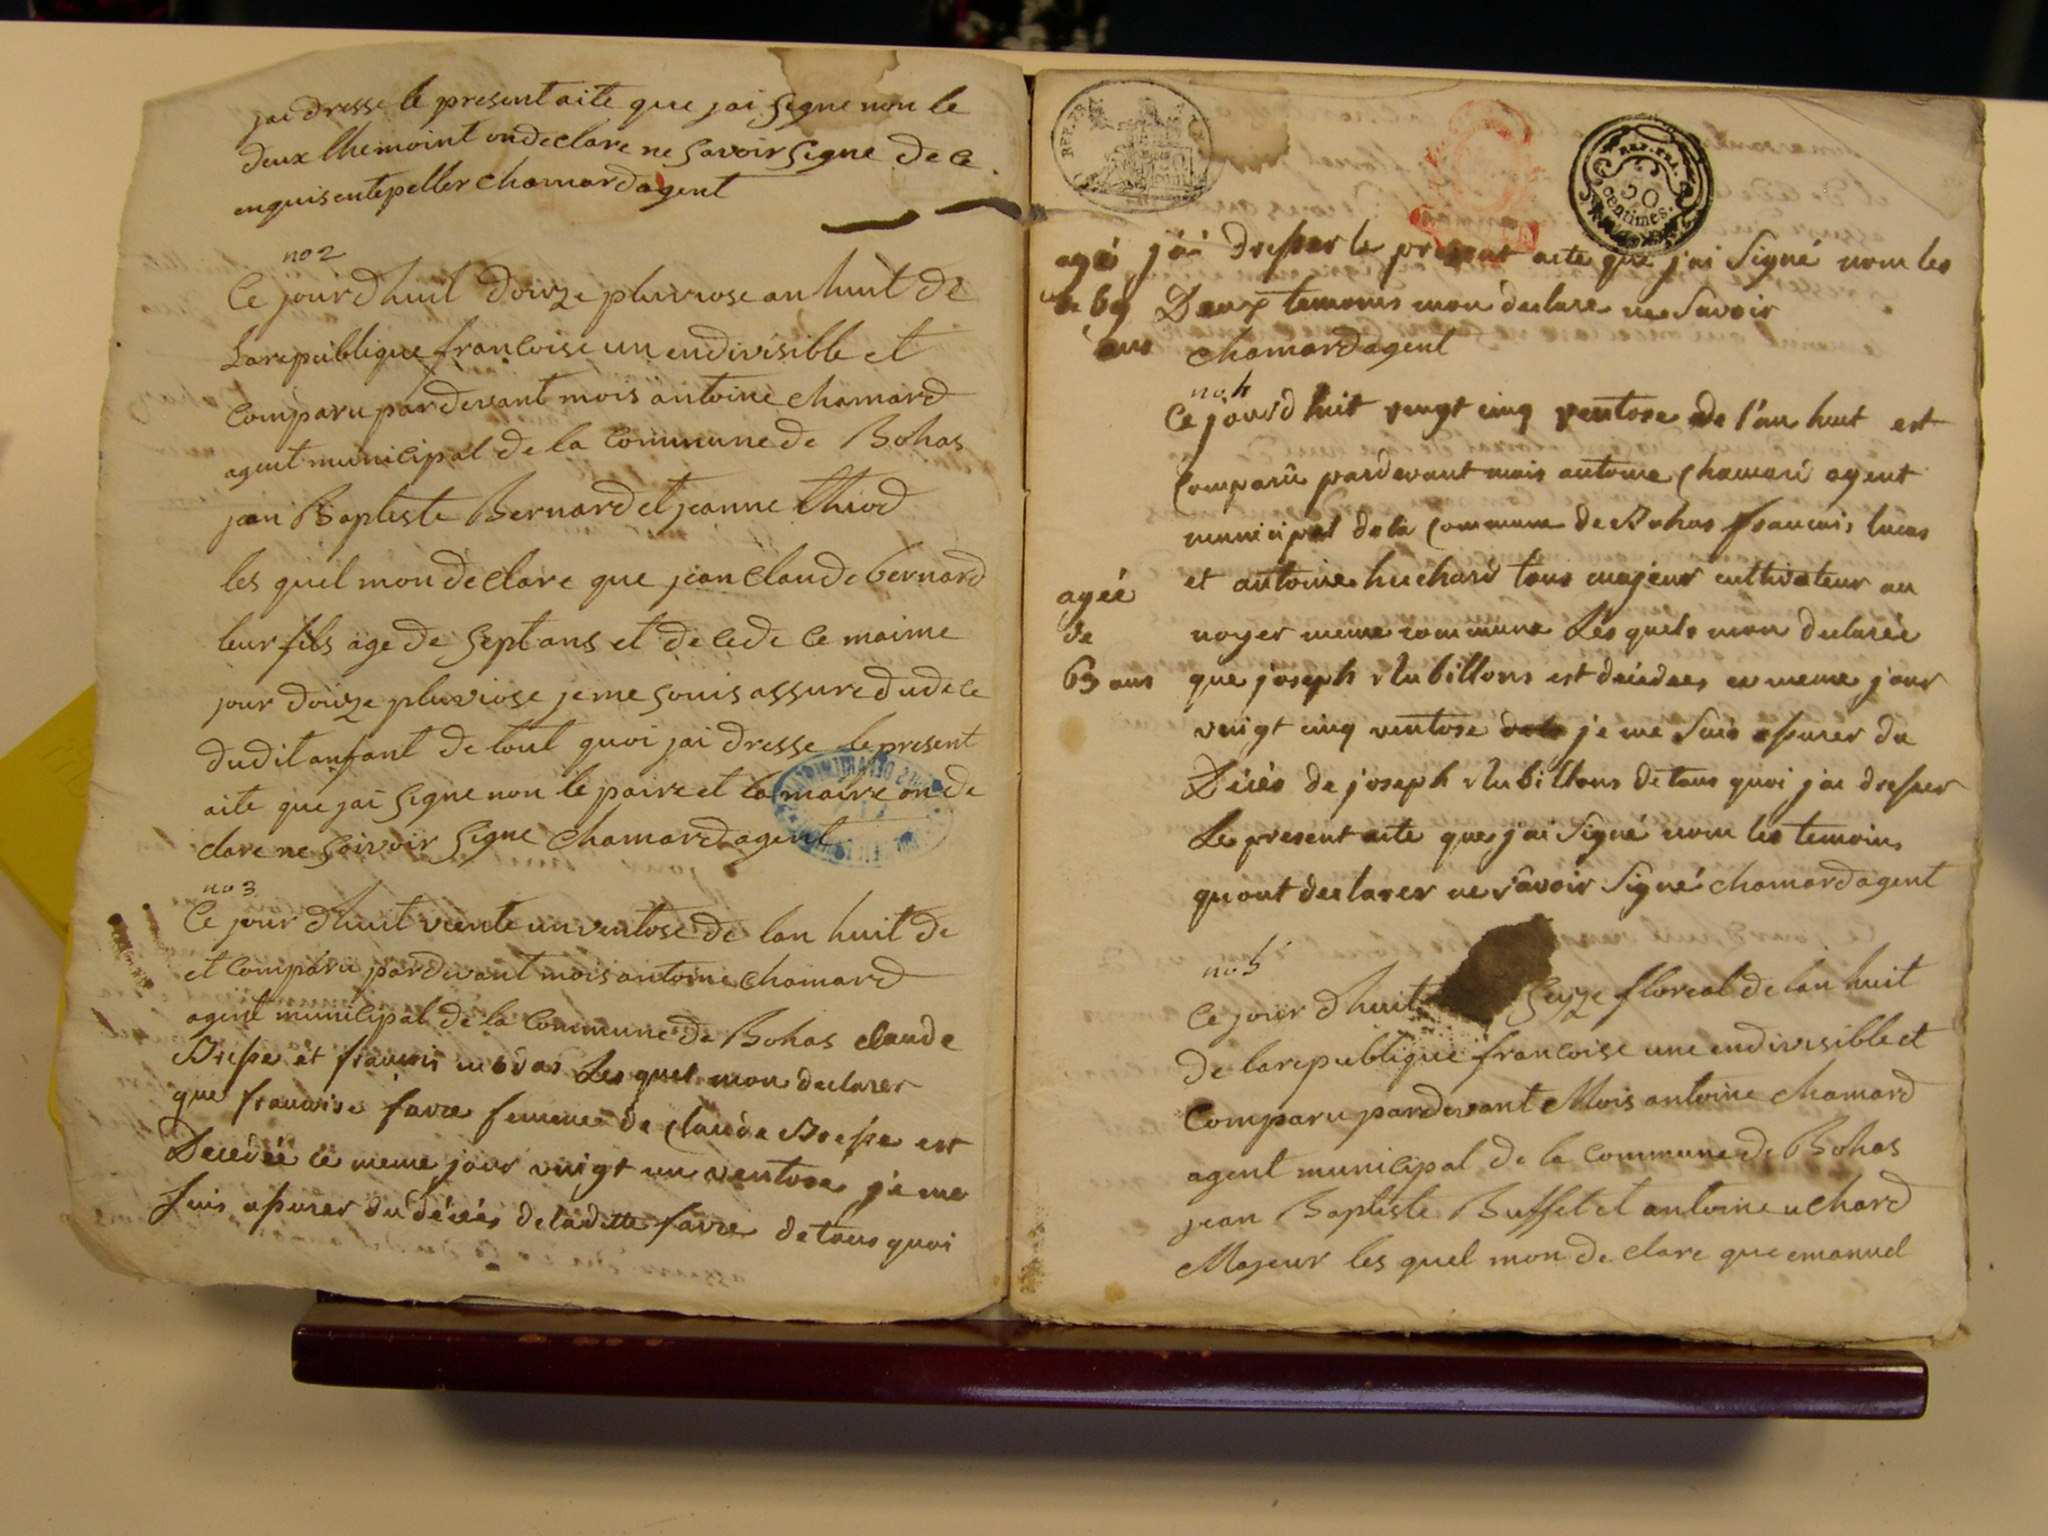 jai dresse le present aite que jai signe non le
deux themoint on declare ne savoir signe de ce
enquis entepeller chamard agent
no 2
Ce jourd huit douze pluviose an huit de
Larepublique francoise un endivisible et
comparu pardevant mois antoine chamard
agent municipal de la commune de Bohas
jean Baptiste Bernard et jeanne thiod
les quel mon declare que jean claude bernard
leur fils age de sept ans et decede ce maime
jour douze pluviose je me souis assure dudece
dudit anfant de tout quoi jai dresse le present
aite que jai signe non le paire et la maire on de
clare ne saivoir signe chamard agent
no 3
Ce jour dhuit veente un ventose de lan huit de
et comparu pardevant mois antoine chamard
agent municipal de la commune de Bohas claude
et francois Les quel mon declarer
que francoise favre femme de claude Bresse est
Decedée ce meme jour vingt un ventose je me
suis assurer du déces de laditte favre de tous quoi
REP. FRA.
REP. FRA.
50
centimes.
agéé
de 69
ans
jái dresser le present aite que j'ai signé nom les
Deux temoins mon declare ne savoir
chamard agent
no 4
Ce jourd huit vengt cinq ventose de l'an huit est
Comparû pardevant mois antoine Chamard agent
municipal de la commune de Bohas francois lucas
et antoine huchard tous majeur cultivateur au
noyer meme commune Les quels mon declarée
agéé
de
63 ans
que joseph est décédées ce meme jour
vengt cinq ventose je me suis assurer du
Décés de joseph de tous quoi jai dresser
Le present aite que j'ai signé nom les temoins
quont declarer ne sâvoir signé chamard agent
no 5
Ce jour dhuit seize floreal de lan huit
de larepublique francoise une endivisible et
comparu pardevant Mois antoine chamard
agent municipal de la commune de Bohas
jean Baptiste Buffet et antoine uchard
Majeur les quel mon declare que emanuel